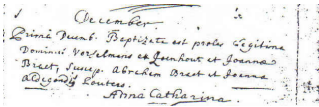 December.
Primâ Decemb. Baptizata est proles Legitima
Dominici Verselmans et Joenhout et Joanna
Breet, Suscep. Abrahem Breet et Joanna
Aldegondis Wouters.
Anna Catharina.